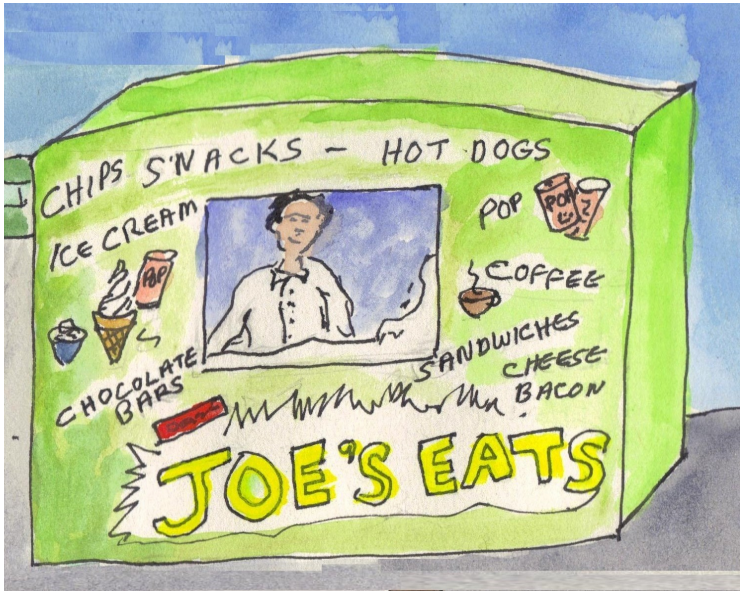 CHIPS S'NACKS - HOT DOGS
ICE CREAM
POP
POP
POP
COFFEE
CHOCOLATE
BARS
SANDWICHES
CHEESE
BACON
JOE'S EATS